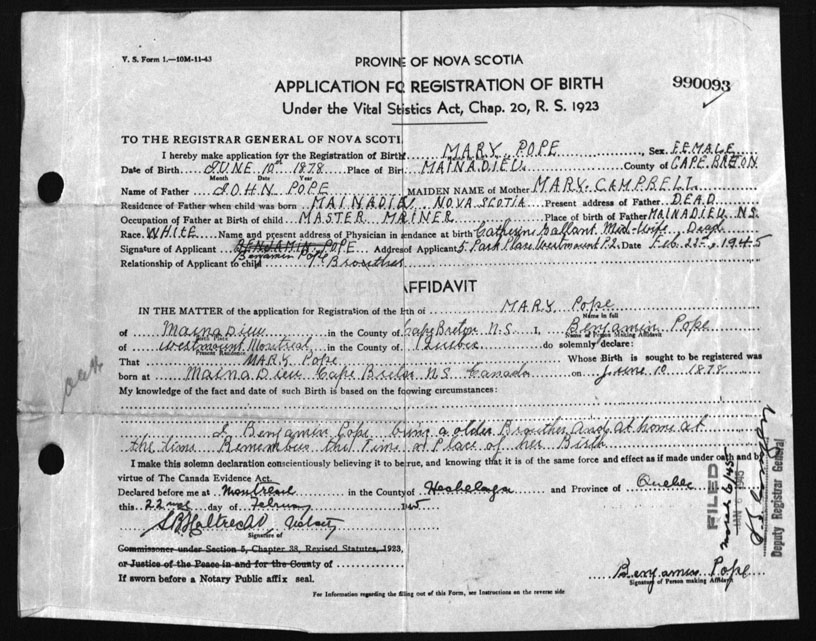 V. S. Form 1.—10M-11-43
PROVINE OF NOVA SCOTIA
APPLICATION FO REGISTRATION OF BIRTH
990093
Under the Vital Stistics Act, Chap. 20, R. S. 1923
TO THE REGISTRAR GENERAL OF NOVA SCOTI
I hereby make application for the Registration of Birth MARY POPE Sex FEMALE
Date of Birth JUNE 10st 1878 Place of Bir MAINADIEU County of CAPE BRETON
Month Date Year
Name of Father JOHN POPE MAIDEN NAME of Mother MARY CAMPBELL
Residence of Father when child was born MAINADIEU NOVA SCOTIA Present address of Father DEAD
Occupation of Father at Birth of child MASTER MAINER Place of birth of Father MAINADIEU N.S.
Race WHITE Name and present address of Physician in endance at birth Catherine Gallant Mid-Wife Dead
Signature of Applicant BENJAMIN POPE Address of Applicant 5 Park Place Westmount P.Q. Date Feb. 22nd, 1945
Benjamin Pope
Relationship of Applicant to child Brouther
AFFIDAVIT
IN THE MATTER of the application for Registration of the of MARY Pope
Name in full
of Mainadieu in the County of Cape Breton N.S. I, Benjamin Pope
Birth Place Name of Person Making Affidavit
of Westmount Montreal in the County of Quebec do solemnly declare:
Present Residence
That MARY Pope Whose Birth is sought to be registered was
born at Maina Dieu Cape Breton N.S Canada on June 10 1878
My knowledge of the fact and date of such Birth is based on the following circumstances:
I Benjamin Pope being a older Brouther And at home at
the time Remember the Time and Place of her Birth
I make this solemn declaration conscientiously believing it to be rue, and knowing that it is of the same force and effect as if made under oath and by
virtue of The Canada Evidence Act.
Declared before me at Montreal in the County of Hochelaga and Province of Quebec
this 22nd day of February 1945
Notary
Signature of
Commissioner under Section 5, Chapter 38, Revised Statutes, 1923,
or Justice of the Peace in and for the County of
If sworn before a Notary Public affix seal.
Benjamin Pope
Signature of Person making Affidavit
For Information regarding the filling out of this Form, see Instructions on the reverse side
FILED
March 6/45
Deputy Registrar General